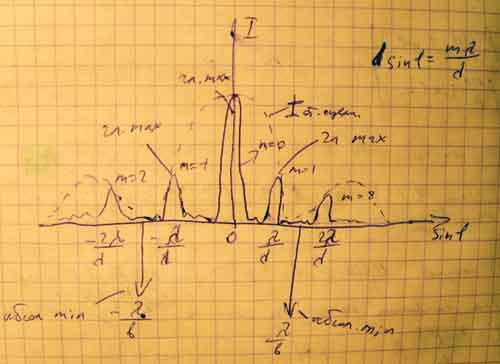 I
d sin φ = mλ/d
гл. max
I от. щели
гл. max
m=-1
m=0
m=1
гл max
m=2
m=8
-2λ/d
-λ/d
0
λ/d
2λ/d
sin φ
абсол min
-λ/b
λ/b
абсол. min